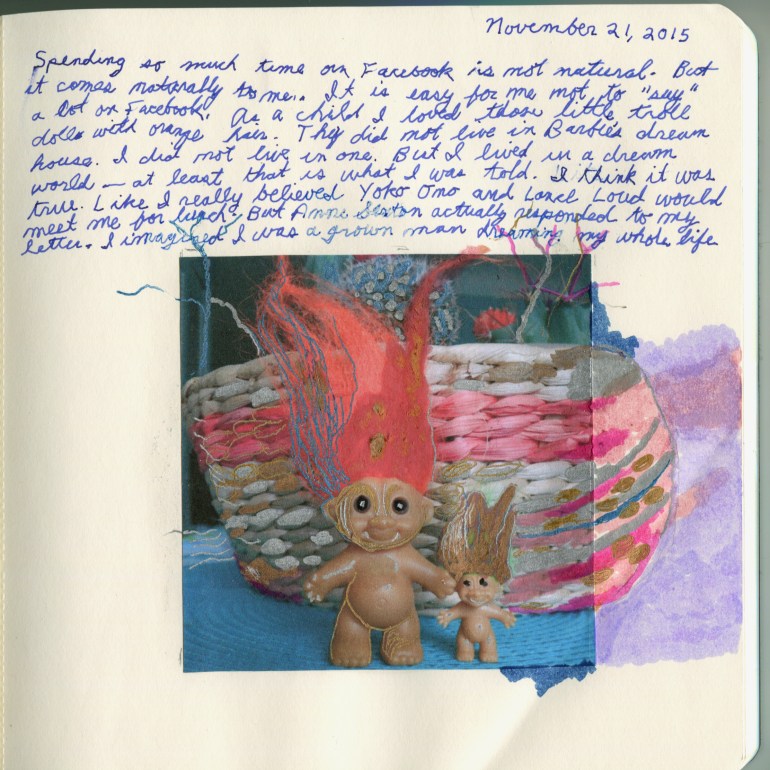 November 21, 2015
Spending so much time on Facebook is not natural. But
it comes naturally to me. It is easy for me not to "say"
a lot on Facebook. As a child I loved those little troll
dolls with orange hair. They did not live in Barbie's dream
house. I did not live in one. But I lived in a dream
world – at least that is what I was told. I think it was
true. Like I really believed Yoko Ono and Lance Loud would
meet me for lunch. But Anne Sexton actually responded to my
letter. I imagined I was a grown man dreaming my whole life